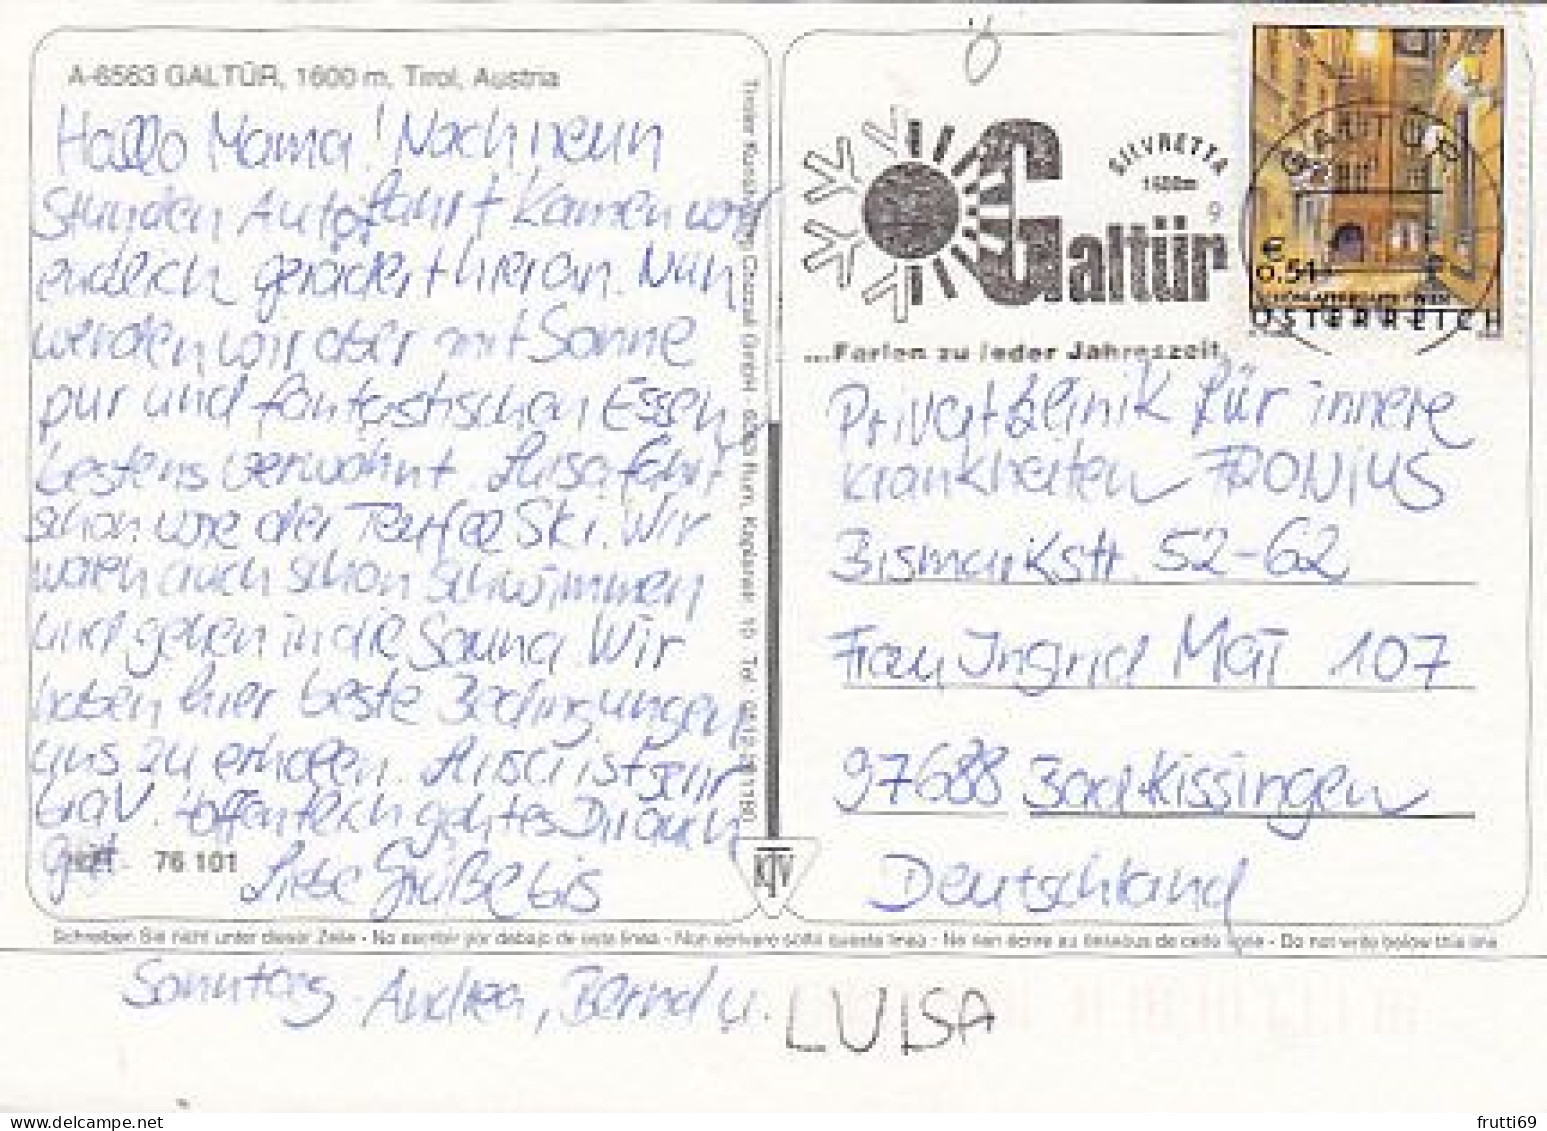 A-6563 GALTÜR, 1600 m, Tirol, Austria
Hallo Mama! Nach neun
Stunden Autofahrt kamen wir
endlich gerädert hier an. Nun
werden wir aber mit Sonne
pur und fantastischen Essen
bestens verwöhnt. Luisa fährt
schon wie der Teufel Ski. Wir
waren auch schon schwimmen
und gehen in die Sauna. Wir
haben hier beste Bedingungen
uns zu erholen. Luisa ist sehr
brav. Hoffentlich geht es Dir auch
gut. Liebe Grüße bis
76 101
Schreiben Sie nicht unter dieser Zeile - No escribir por debajo de esta linea - Non scrivere sotto questa linea - Ne rien écrire au dessous de cette ligne - Do not write below this line
Sonntag. Andrea, Bernd u. LUISA
KTV
Ö
SILVRETTA
1600m
9
Galtür
...Ferien zu jeder Jahreszeit
GALTÜR
€
0.51
ÖSTERREICH
Privatklinik für innere
Krankheiten FRONIUS
Bismarkstr. 52-62
Frau Ingrid Mai 107
97688 Bad Kissingen
Deutschland
frutti69